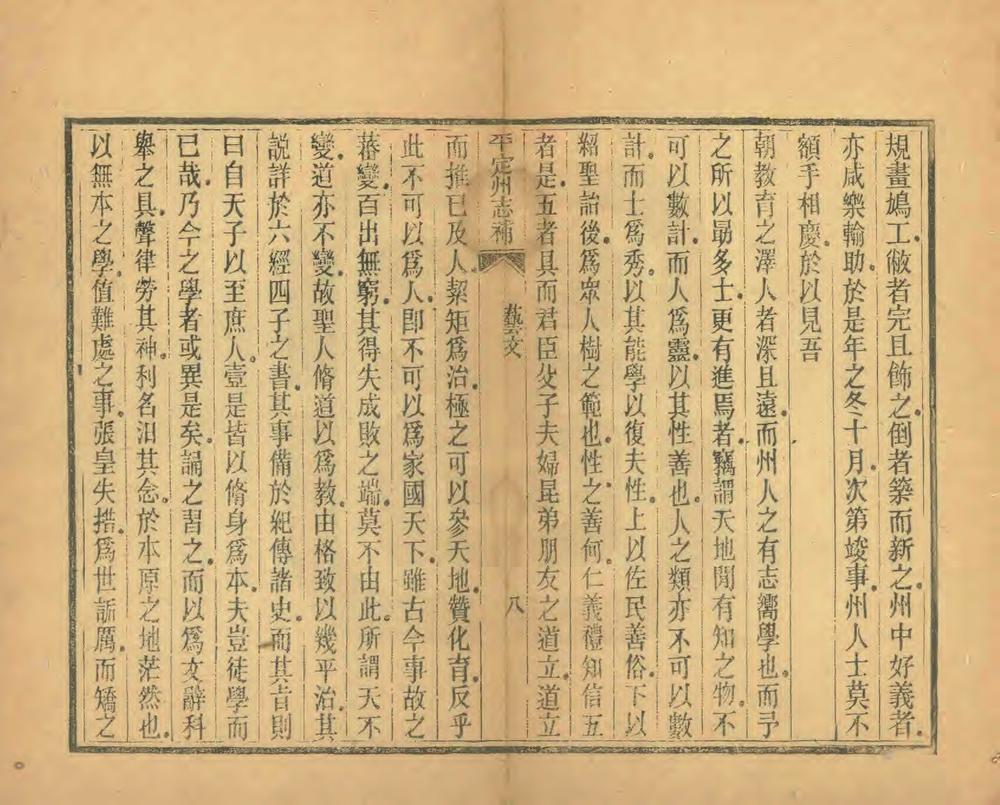 規畫鳩工敝者完且飾之倒者築而新之州中好義者
亦咸樂輸助於是年之冬十月次第竣事州人士莫不
額手相慶於以見吾
朝教育之澤人者深且遠而州人之有志嚮學也而予
之所以勗多士更有進焉者竊謂天地閒有知之物不
可以數計而人爲靈以其性善也人之類亦不可以數
計而士爲秀以其能學以復夫性上以佐民善俗下以
紹聖詒後爲眾人樹之範也性之善何仁義禮知信五
者是五者具而君臣父子夫婦昆弟朋友之道立道立
平定州志補
藝文
八
而推己及人絜矩爲治極之可以參天地贊化育反乎
此不可以爲人卽不可以爲家國天下雖古今事故之
蕃變百出無窮其得失成敗之端莫不由此所謂天不
變道亦不變故聖人脩道以爲教由格致以幾平治其
說詳於六經四子之書其事備於紀傳諸史而其旨則
曰自天子以至庶人壹是皆以脩身爲本夫豈徒學而
已哉乃今之學者或異是矣誦之習之而以爲文辭科
舉之具聲律勞其神利名汨其念於本原之地茫然也
以無本之學值難處之事張皇失措爲世詬厲而矯之